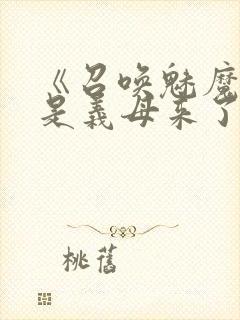 《召唤魅魔
是义母来了
桃旧